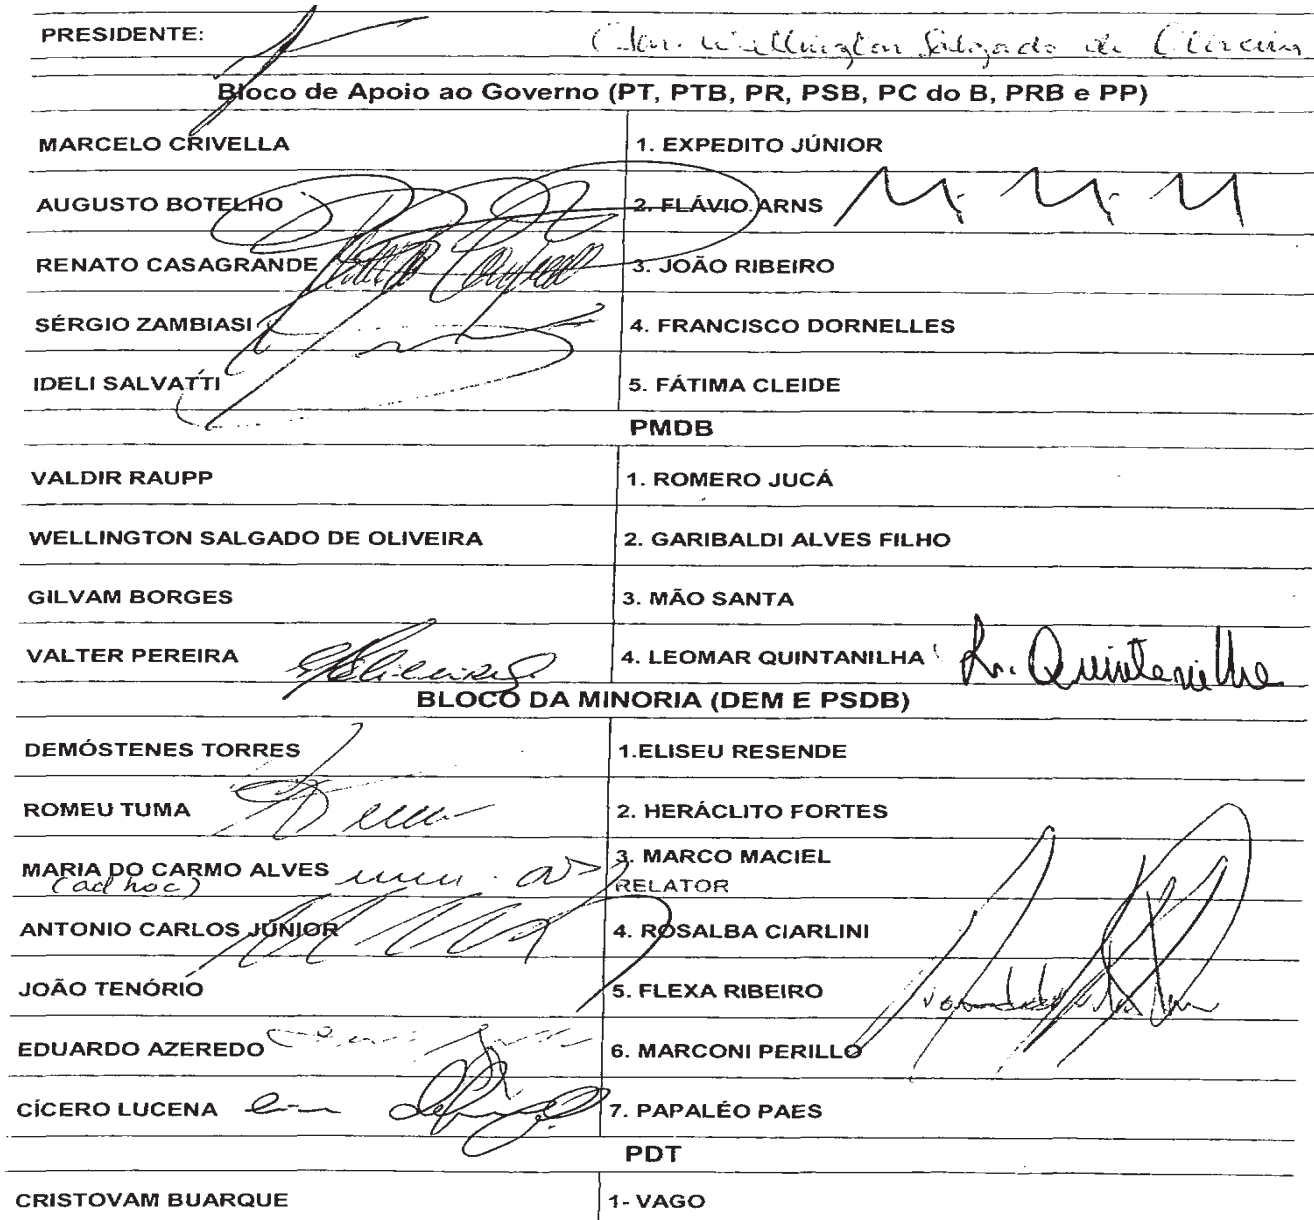 PRESIDENTE: Sen. Wellington Salgado de Oliveira
Bloco de Apoio ao Governo (PT, PTB, PR, PSB, PC do B, PRB e PP)
MARCELO CRIVELLA 1. EXPEDITO JÚNIOR
AUGUSTO BOTELHO 2. FLÁVIO ARNS
RENATO CASAGRANDE 3. JOÃO RIBEIRO
SÉRGIO ZAMBIASI 4. FRANCISCO DORNELLES
IDELI SALVATTI 5. FÁTIMA CLEIDE
PMDB
VALDIR RAUPP 1. ROMERO JUCÁ
WELLINGTON SALGADO DE OLIVEIRA 2. GARIBALDI ALVES FILHO
GILVAM BORGES 3. MÃO SANTA
VALTER PEREIRA 4. LEOMAR QUINTANILHA Quintanilha
BLOCO DA MINORIA (DEM E PSDB)
DEMÓSTENES TORRES 1.ELISEU RESENDE
ROMEU TUMA 2. HERÁCLITO FORTES
MARIA DO CARMO ALVES 3. MARCO MACIEL
(ad hoc) RELATOR
ANTONIO CARLOS JÚNIOR 4. ROSALBA CIARLINI
JOÃO TENÓRIO 5. FLEXA RIBEIRO
EDUARDO AZEREDO 6. MARCONI PERILLO
CÍCERO LUCENA 7. PAPALÉO PAES
PDT
CRISTOVAM BUARQUE 1- VAGO